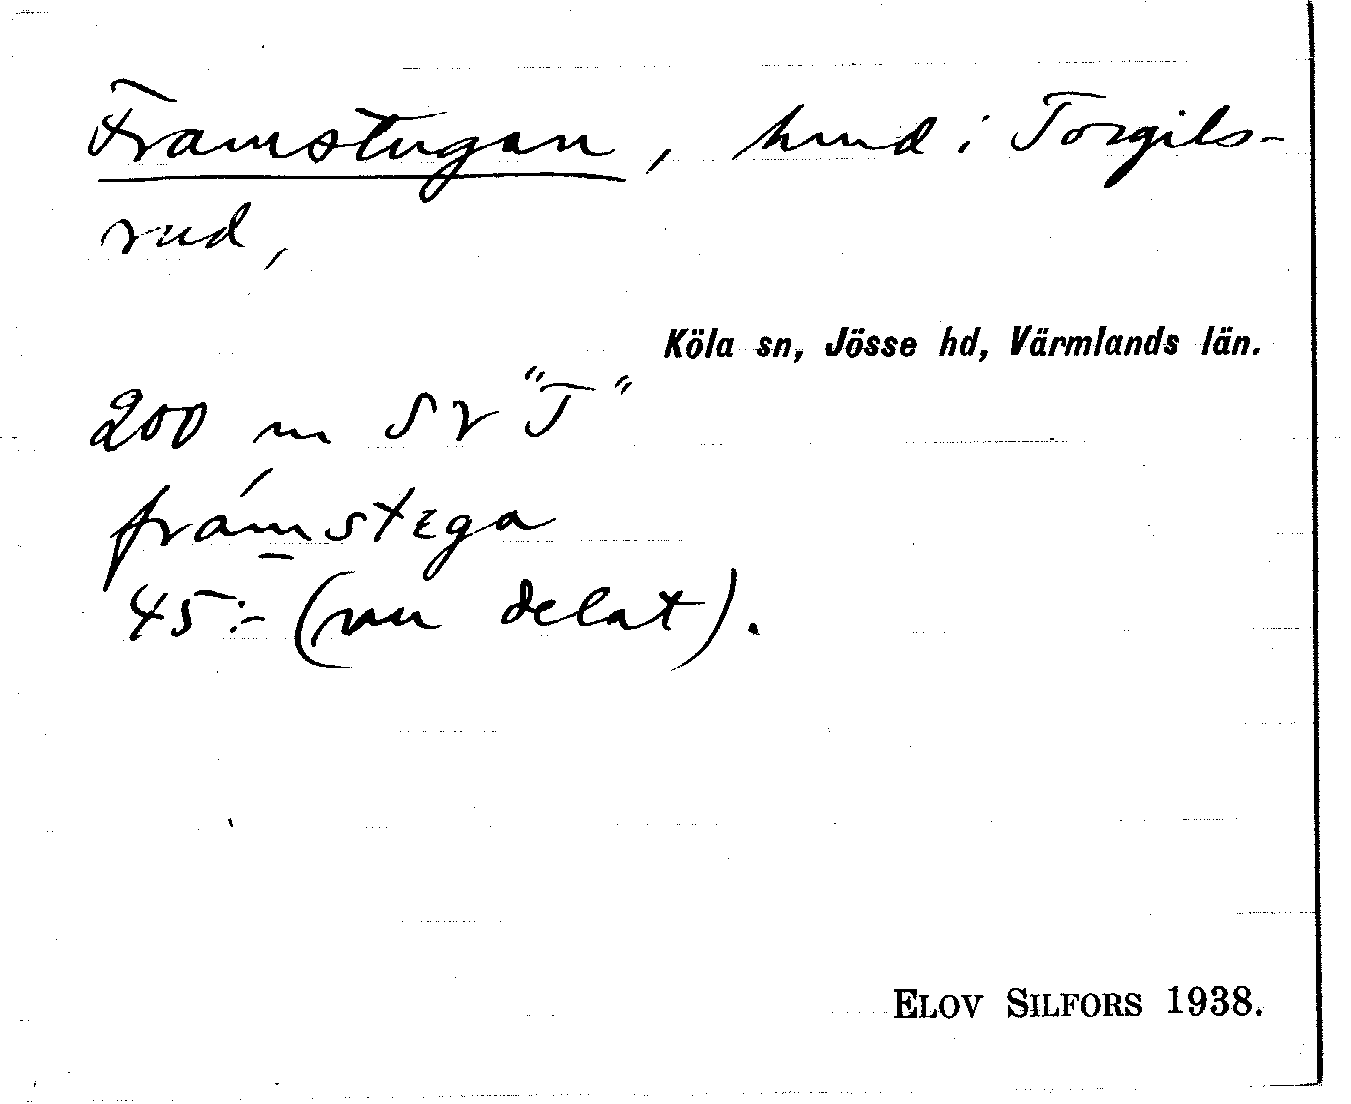 Framstugan, hmd i Torgils-
rud,
Köla sn, Jösse hd, Värmlands län.
200 m SV "T"
frámstega
45:- (nu delat).
ELOV SILFORS 1938.